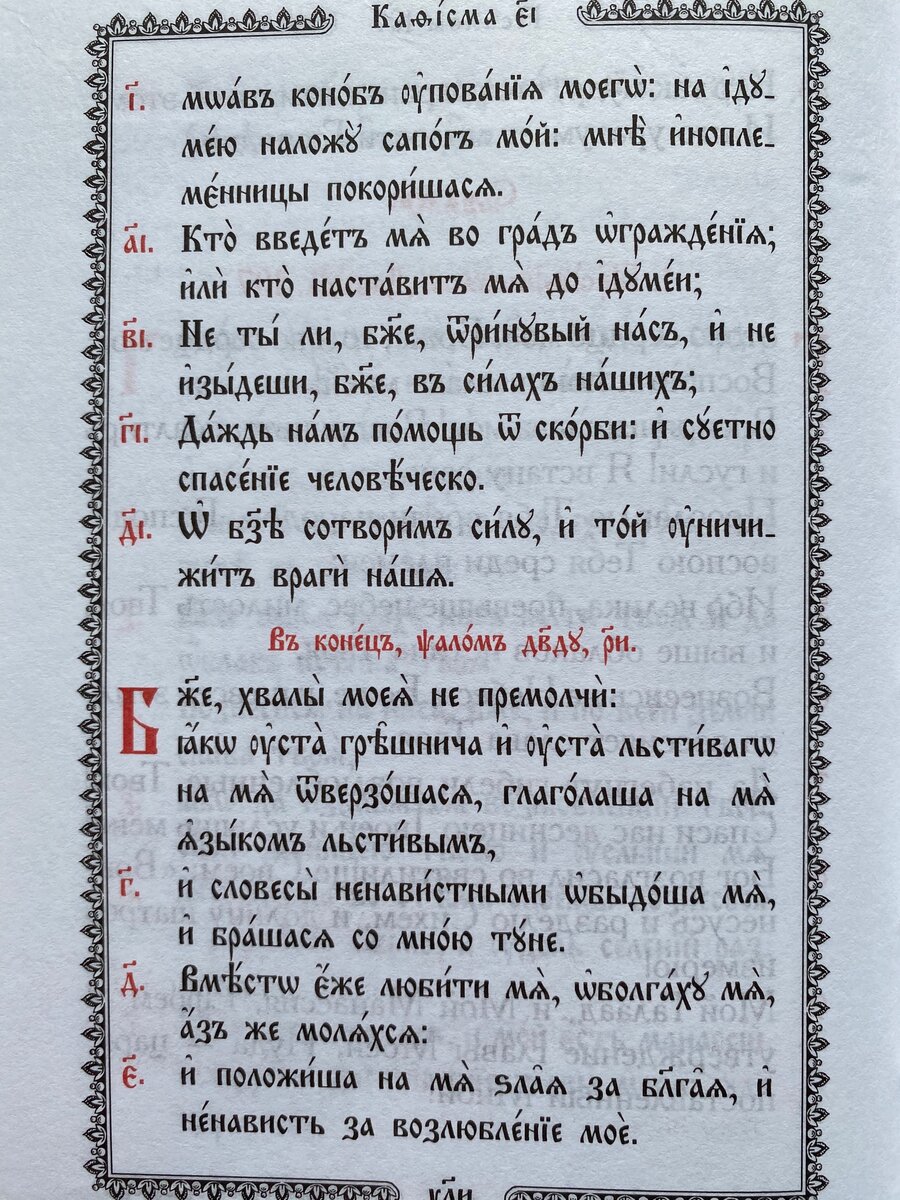 Каѳі́сма є҃і
і҃. мѡа́въ коно́бъ ᲂу҆пова́нїѧ моегѡ̀: на і҆дꙋ-
ме́ю наложꙋ̀ сапо́гъ мо́й: мнѣ̀ и҆нопле-
ме́нницы покори́шасѧ.
а҃і. Кто̀ введе́тъ мѧ̀ во гра́дъ ѡ҆гражде́нїѧ;
и҆лѝ кто̀ наста́витъ мѧ̀ до і҆дꙋме́и;
в҃і. Не ты́ ли, бж҃е, ѿри́нꙋвый на́съ, и҆ не
и҆зы́деши, бж҃е, въ си́лахъ на́шихъ;
г҃і. Да́ждь на́мъ по́мощь ѿ ско́рби: и҆ сꙋ́етно
спасе́нїе человѣ́ческо.
д҃і. Ѡ҆ бз҃ѣ сотвори́мъ си́лꙋ, и҆ то́й ᲂу҆ничи-
жи́тъ врагѝ на́шѧ.
Въ коне́цъ, ѱало́мъ дв҃дꙋ, р҃и.
Бж҃е, хвалы̀ моеѧ̀ не премолчѝ:
ꙗ҆́кѡ ᲂу҆ста̀ грѣ́шнича и҆ ᲂу҆ста̀ льсти́вагѡ
на мѧ̀ ѿверзо́шасѧ, глаго́лаша на мѧ̀
ѧ҆зы́комъ льсти́вымъ,
г҃. и҆ словесы̀ ненави́стными ѡ҆быдо́ша мѧ̀,
и҆ бра́шасѧ со мно́ю тꙋ́не.
д҃. Вмѣ́стѡ є҆́же люби́ти мѧ̀, ѡ҆болга́хꙋ мѧ̀,
а҆́зъ же молѧ́хсѧ:
є҃. и҆ положи́ша на мѧ̀ ѕла̑ѧ за бл҃га̑ѧ, и҆
не́нависть за возлюбле́нїе моѐ.